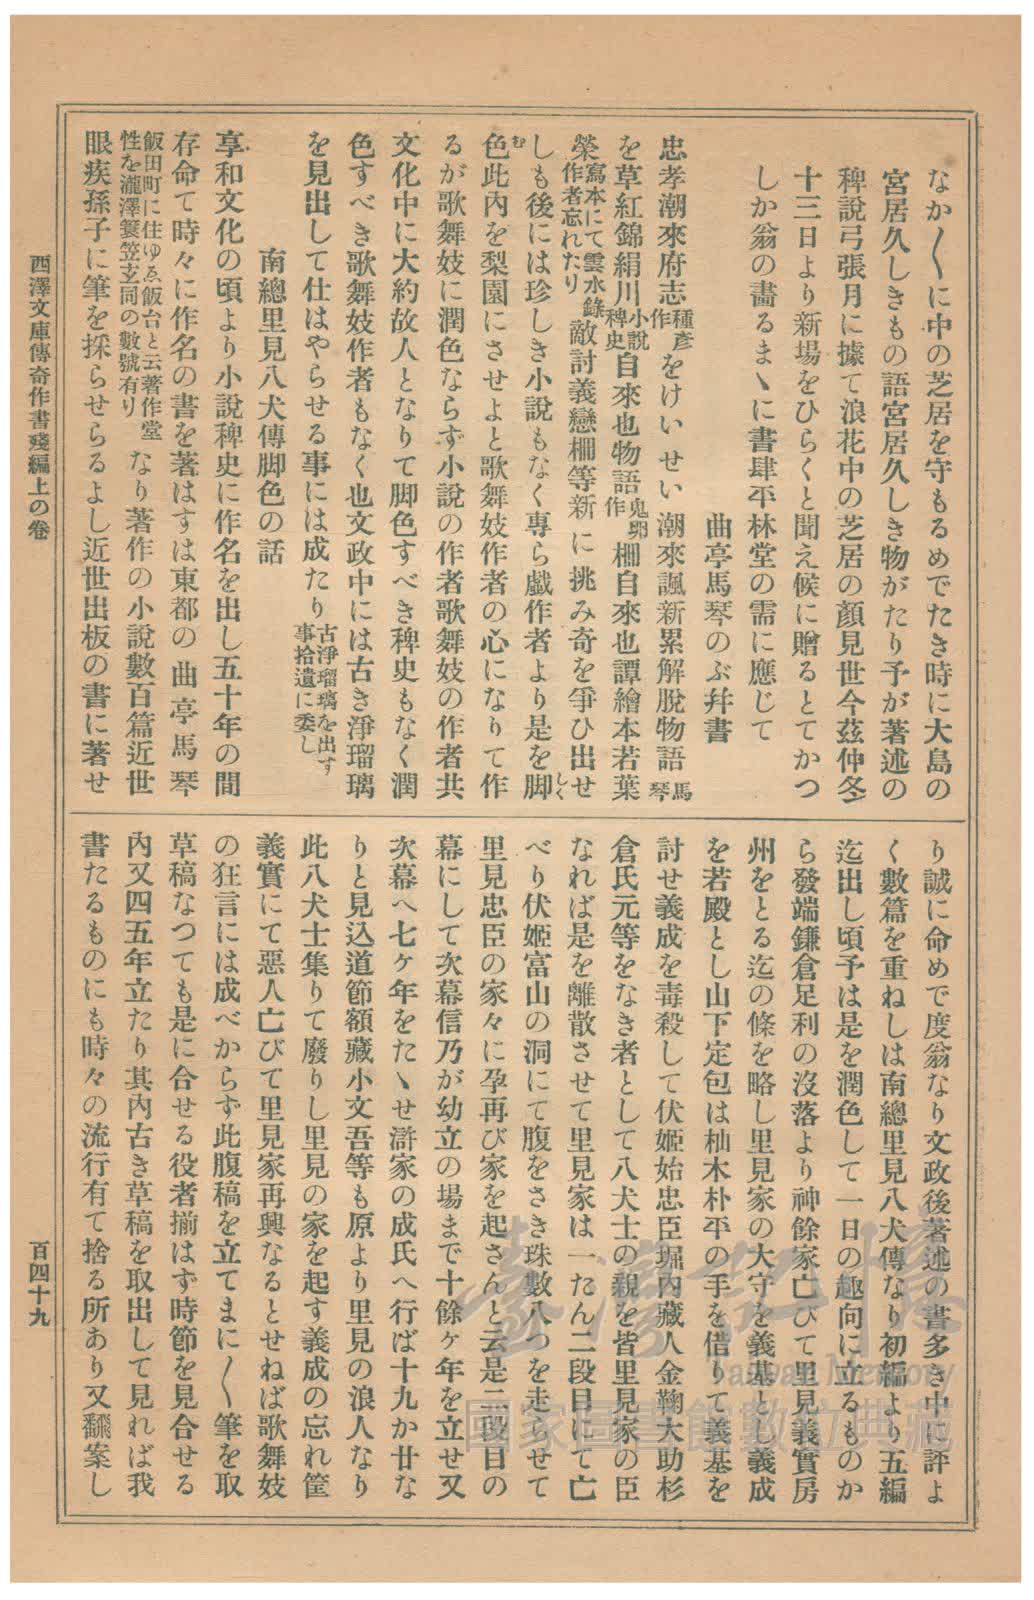 なか〳〵に中の芝居を守もるめでたき時に大島の
宮居久しきもの語宮居久しき物がたり予が著述の
稗說弓張月に據て浪花中の芝居の顏見世今茲仲冬
十三日より新場をひらくと聞え候に贈るとてかつ
しか翁の畵るまゝに書肆平林堂の需に應じて
曲亭馬琴のぶ幷書
忠孝潮來府志種彥作をけいせい潮來諷新累解脫物語馬琴
を草紅錦絹川小說稗史自來也物語鬼卵作柵自來也譚繪本若葉
榮寫本にて雲水錄作者忘れたり敵討義戀柵等新に挑み奇を爭ひ出せ
しも後には珍しき小說もなく專ら戲作者より是を脚
色此內を梨園にさせよと歌舞妓作者の心になりて作
るが歌舞妓に潤色ならず小說の作者歌舞妓の作者共
文化中に大約故人となりて脚色すべき稗史もなく潤
色すべき歌舞妓作者もなく也文政中には古き淨瑠璃
を見出して仕はやらせる事には成たり古淨瑠璃を出す事拾遺に委し
南總里見八犬傳脚色の話
享和文化の頃より小說稗史に作名を出し五十年の間
存命て時々に作名の書を著はすは東都の曲亭馬琴
飯田町に住ゆゑ飯台と云著作堂性を瀧澤簑笠玄同の數號有りなり著作の小說數百篇近世
眼疾孫子に筆を採らせらるよし近世出板の書に著せ
り誠に命めで度翁なり文政後著述の書多き中に評よ
く數篇を重ねしは南總里見八犬傳なり初編より五編
迄出し頃予は是を潤色して一日の趣向に立るものか
ら發端鎌倉足利の沒落より神餘家亡びて里見義實房
州をとる迄の條を略し里見家の大守を義基とし義成
を若殿とし山下定包は杣木朴平の手を借りて義基を
討せ義成を毒殺して伏姬始忠臣堀內藏人金鞠大助杉
倉氏元等をなき者として八犬士の親を皆里見家の臣
なれば是を離散させて里見家は一たん二段目にて亡
べり伏姬富山の洞にて腹をさき珠數八つを走らせて
里見忠臣の家々に孕再び家を起さんと云是二段目の
幕にして次幕信乃が幼立の場まで十餘ヶ年を立せ又
次幕へ七ヶ年をたゝせ滸家の成氏へ行ば十九か廿な
りと見込道節額藏小文吾等も原より里見の浪人なり
此八犬士集りて廢りし里見の家を起す義成の忘れ筐
義實にて惡人亡びて里見家再興なるとせねば歌舞妓
の狂言には成べからず此腹稿を立てまに〳〵筆を取
草稿なつても是に合せる役者揃はず時節を見合せる
內又四五年立たり其內古き草稿を取出して見れば我
書たるものにも時々の流行有て捨る所あり又飜案し
西澤文庫傳奇作書殘編上の卷
百四十九
臺灣記憶
Taiwan Memory
國家圖書館數位典藏